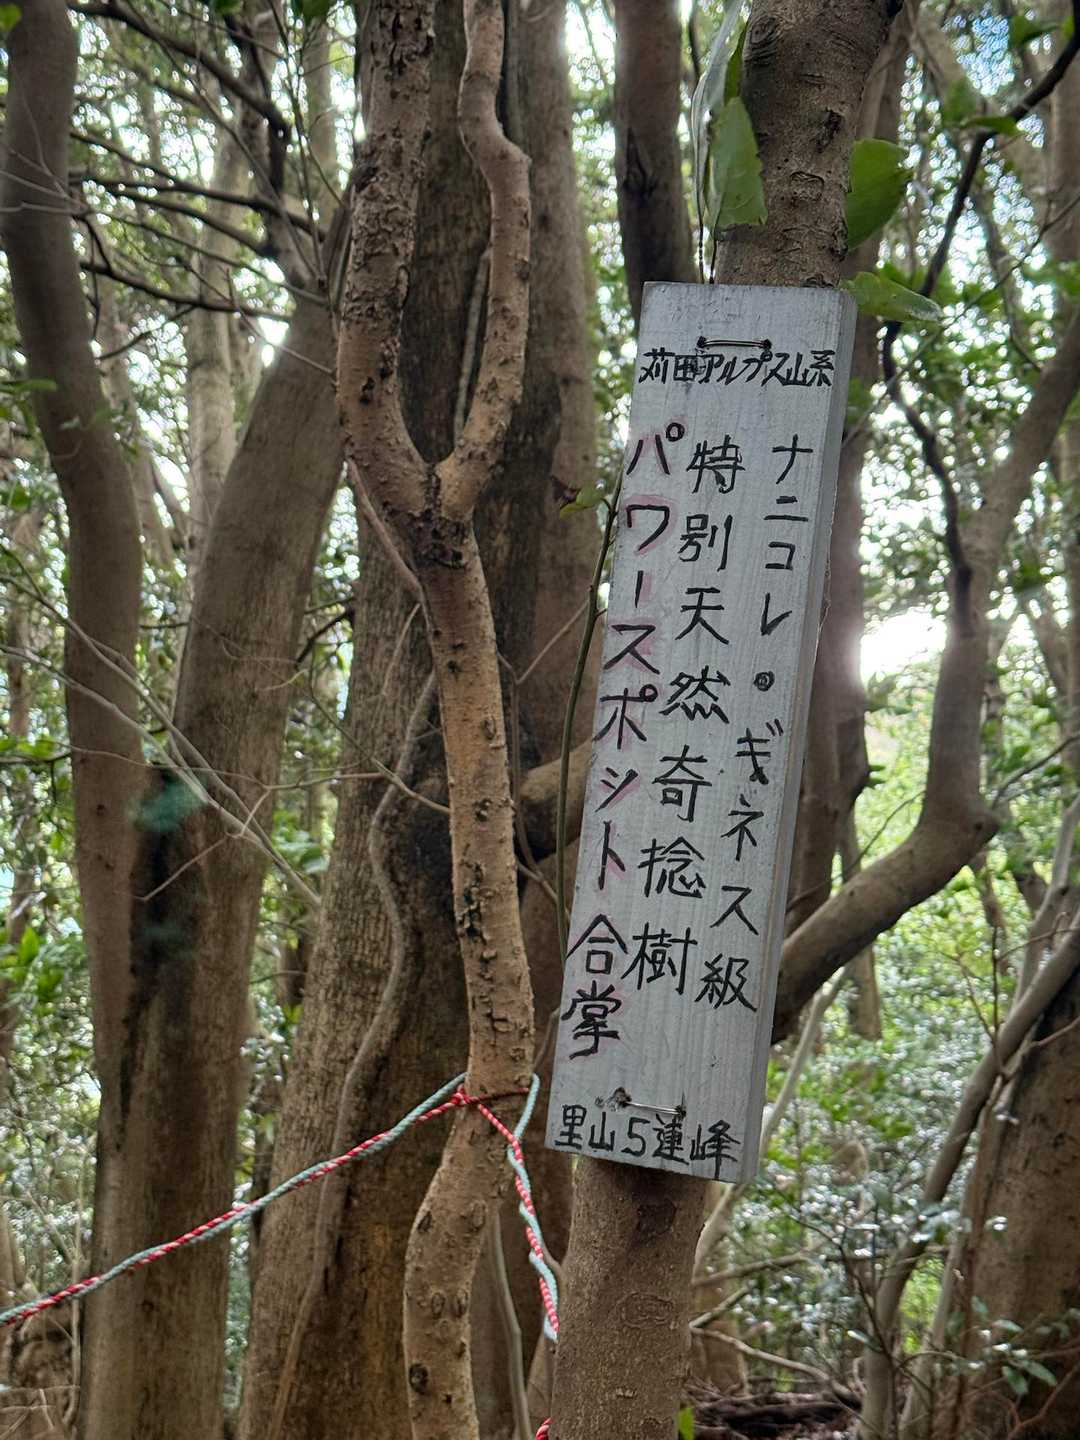 苅田アルプス山系
ナニコレ・ギネス級
特別天然奇捻樹
パワースポット合掌
里山5蓮峰